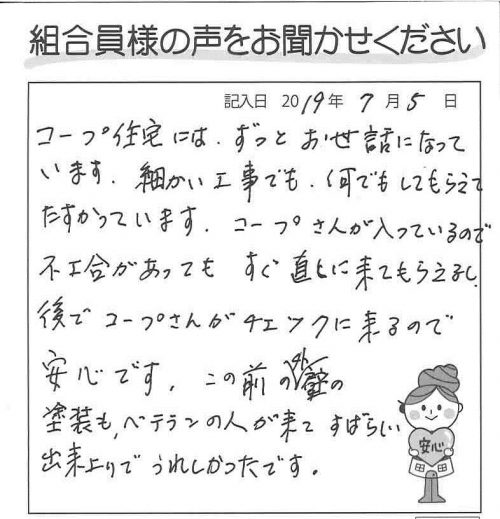 組合員様の声をお聞かせください
記入日 2019年 7月5日
コープ住宅には、ずっとお世話になって
います。細かい工事でも、何でもしてもらえて
たすかっています。コープさんが入っているので
不工合があっても すぐ直しに来てもらえるし、
後でコープさんがチェックに来るので
安心です。この前の外壁の
塗装も、ベテランの人が来て すばらしい
出来上りで うれしかったです。
安心